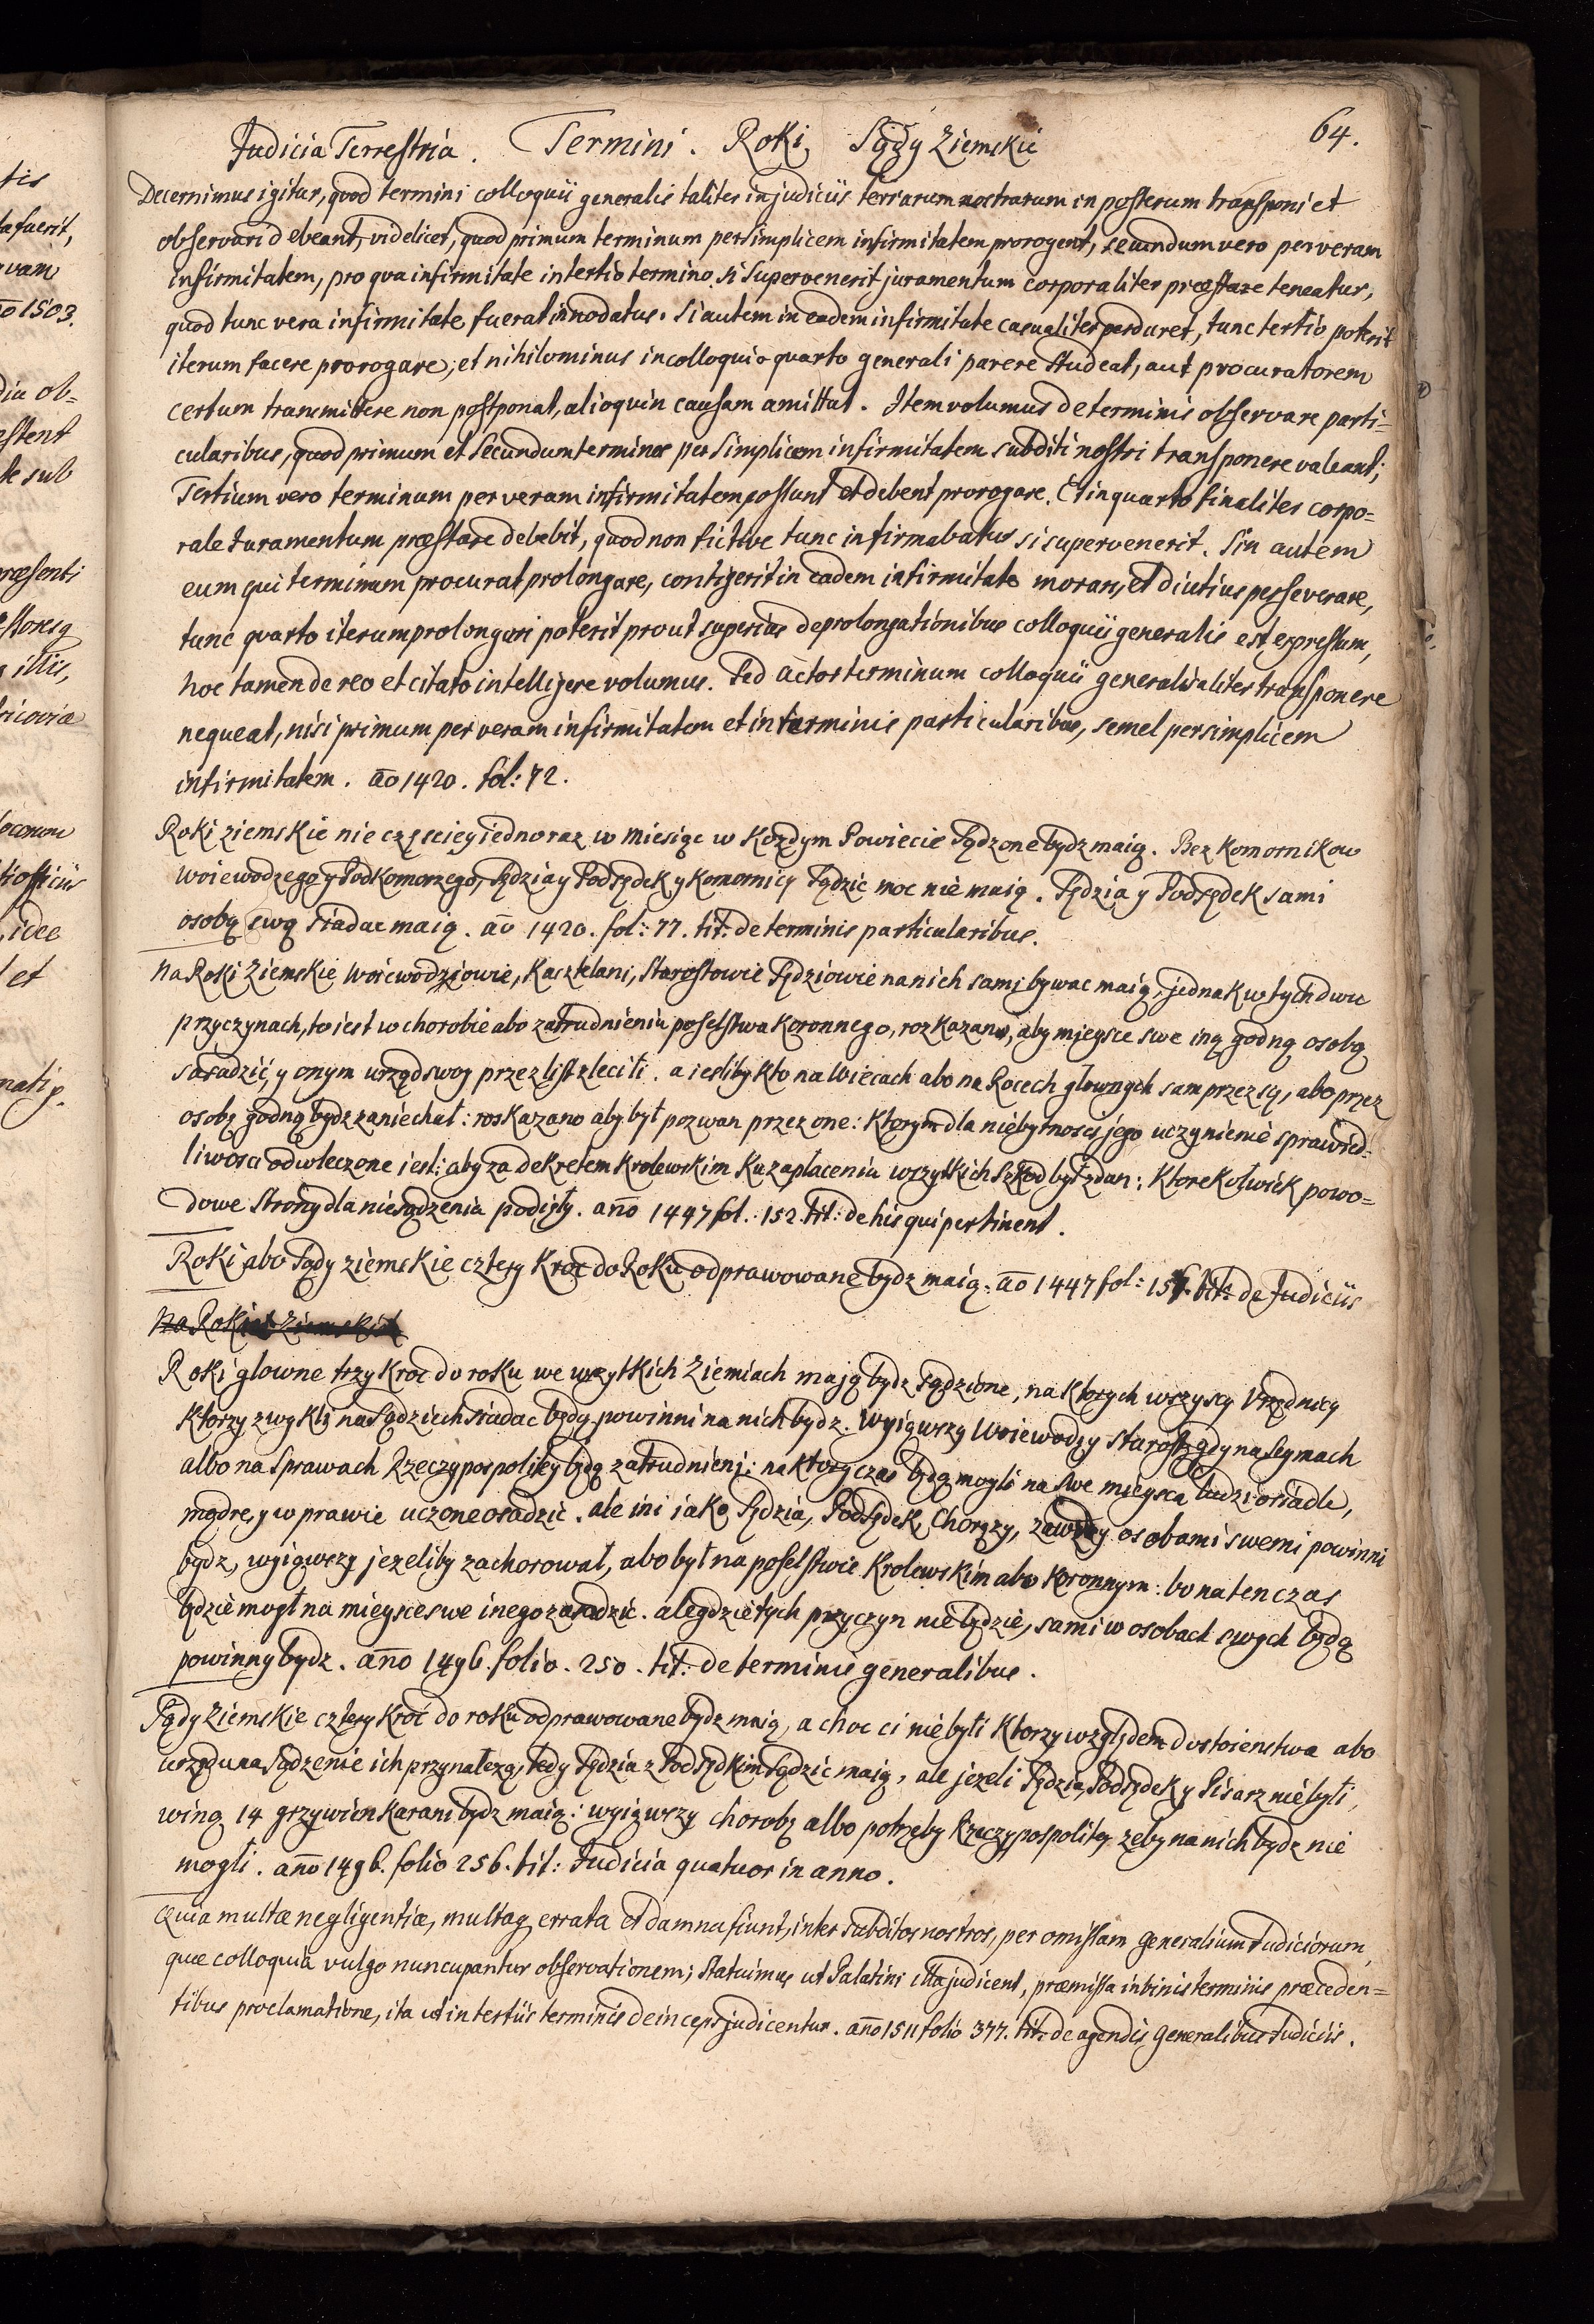 64.
Judicia Terrestria. Termini. Roki, Sądy Ziemskie
Decernimus igitur, quod termini colloquii generalis taliter in judiciis terrarum nostrarum in posterum transponi et
observari debeant, videlicet, quod primum terminum per simplicem infirmitatem prorogent, secundum vero per veram
infirmitatem, pro qva infirmitate in tertio termino si supervenerit juramentum corporaliter præstare teneatur,
quod tunc vera infirmitate fuerat innodatus. Si autem in eadem infirmitate casualiter perduret, tunc tertio poterit
iterum facere prorogare, et nihilominus in colloquio quarto generali parere studeat, aut procuratorem
certum transmittere non postponat, alioquin causam amittat. Item volumus de terminis observare parti=
cularibus, quod primum et secundum terminos per simplicem infirmitatem subditi nostri transponere valeant;
Tertium vero terminum per veram infirmitatem possunt et debent prorogare. Et in quarto finaliter corpo=
rale Juramentum præstare debebit, quod non fictive tunc infirmabatur si supervenerit. Sin autem
eum qui terminum procurat prolongare, contigerit in eadem infirmitate morari, et diutius perseverare,
tunc qvarto iterum prolongari poterit prout superius de prolongationibus colloquii generalis est expressum,
hoc tamen de reo et citato intelligere volumus. Sed actor terminum colloquii generalis aliter transponere
nequeat, nisi primum per veram infirmitatem et in terminis particularibus, semel per simplicem
infirmitatem. año 1420. fol: 72.
Roki ziemskie nie częsciey iedno raz w miesiąc w kozdym Powiecie sądzone bydz maią. Bez komornikow
Woiewodzego y Podkomorzego, Sędzia y Podsędek y komornicy sądzic moc nie maią. Sędzia y Podsędek sami
osobą swą siadac maią. año 1420. fol: 77. tit: de terminis particularibus.
Na Roki Ziemskie Woiewodziowie, Kasztelani, Starostowie Sędziowie na nich sami bywac maią, jednak w tych dwu
przyczynach, to iest w chorobie abo zatrudnieniu poselstwa koronnego, rozkazano, aby mieysce swe iną godną osobą
sasadzić, y onym urząd swoy przez list zlecili. a iesliby kto na Wiecach abo na Rocech głownych sam przez się, abo przez
osobę godną bydz zaniechał: roskazano aby był pozwan przez one: ktorym dla niebytnosci jego uczynienie sprawied=
liwosci odwleczone iest: aby za dekretem krolewskim ku zapłaceniu wszytkich szkod był zdan: ktorekolwiek powo=
dowe strony dla niesądzenia podięły. año 1447 fol: 152. tit: de his qui pertinent.
Roki abo Sądy ziemskie cztery kroc do Roku odprawowane bydz maią. año 1447 fol: tit: de Judiciis
Na Roki Ziemskie
Roki glowne trzy kroc do roku we wszytkich Ziemiach mają bydz sądzone, na ktorych wszyscy Vrzędnicy
ktorzy zwykli na Sądziech siadac będą powinni na nich bydz. Wyiąwszy Woiewodzy Starosty gdy na Seymach
albo na sprawach Rzeczypospolitey będą zatrudnieni: na ktory czas będą mogli na swe mieysca ludzi osiadłe,
mądre, y w prawie uczone osadzic. ale ini iako Sędzia, Podsędek, Chorąży, zawzdy osobami swemi powinni
bydz, wyiąwszy jezeliby zachorował, abo był na poselstwie krolewskim abo koronnym: bo na ten czas
będzie mogł na mieysce swe inego zasadzic. ale gdzie tych przyczyn nie będzie, sami w osobach swych będą
powinny bydz. año 1496. folio. 250. tit: de terminis generalibus.
Sądy Ziemskie cztery kroc do roku odprawowane bydz maią, a choc ci nie byli ktorzy względem dostoienstwa abo
urzędu na sądzenie ich przynalezą, tedy Sędzia z Podsędkiem sądzic maią, ale jezeli Sędzia, Podsędek y Pisarz nie byli,
winą 14 grzywien karani bydz maią: wyiąwszy chorobę albo potrzeby Rzeczypospolitey zeby na nich bydz nie
mogli. año 1496. folio 256. tit: Judicia quatuor in anno.
Quia multæ negligentiæ, multaq errata et damna fiunt, inter subditos nostros, per omissam generalium Judiciorum,
quæ colloquia vulgo nuncupantur observationem; statuimus ut Palatini illa judicent, præmissa in binis terminis præceden=
tibus proclamatione, ita ut in tertiis terminis deinceps judicentur. año 1511 folio 377. tit: de agendis Generalibus Judiciis.